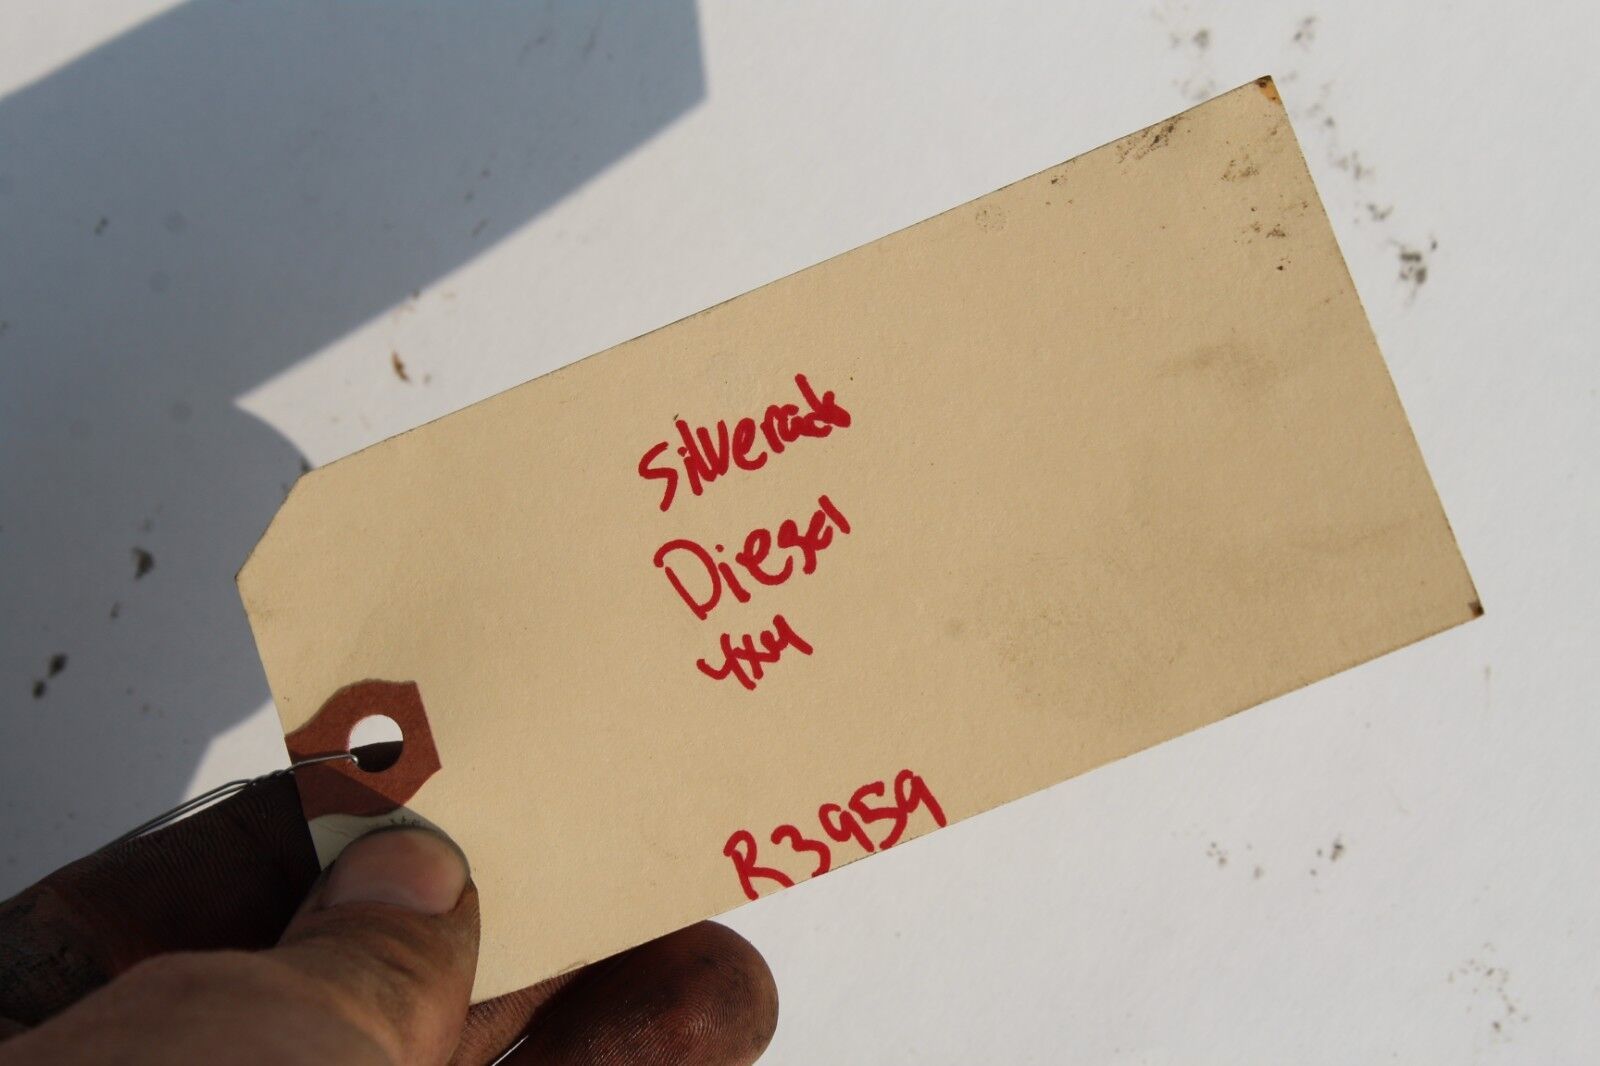 Silverado
Diesel
4x4
R3959